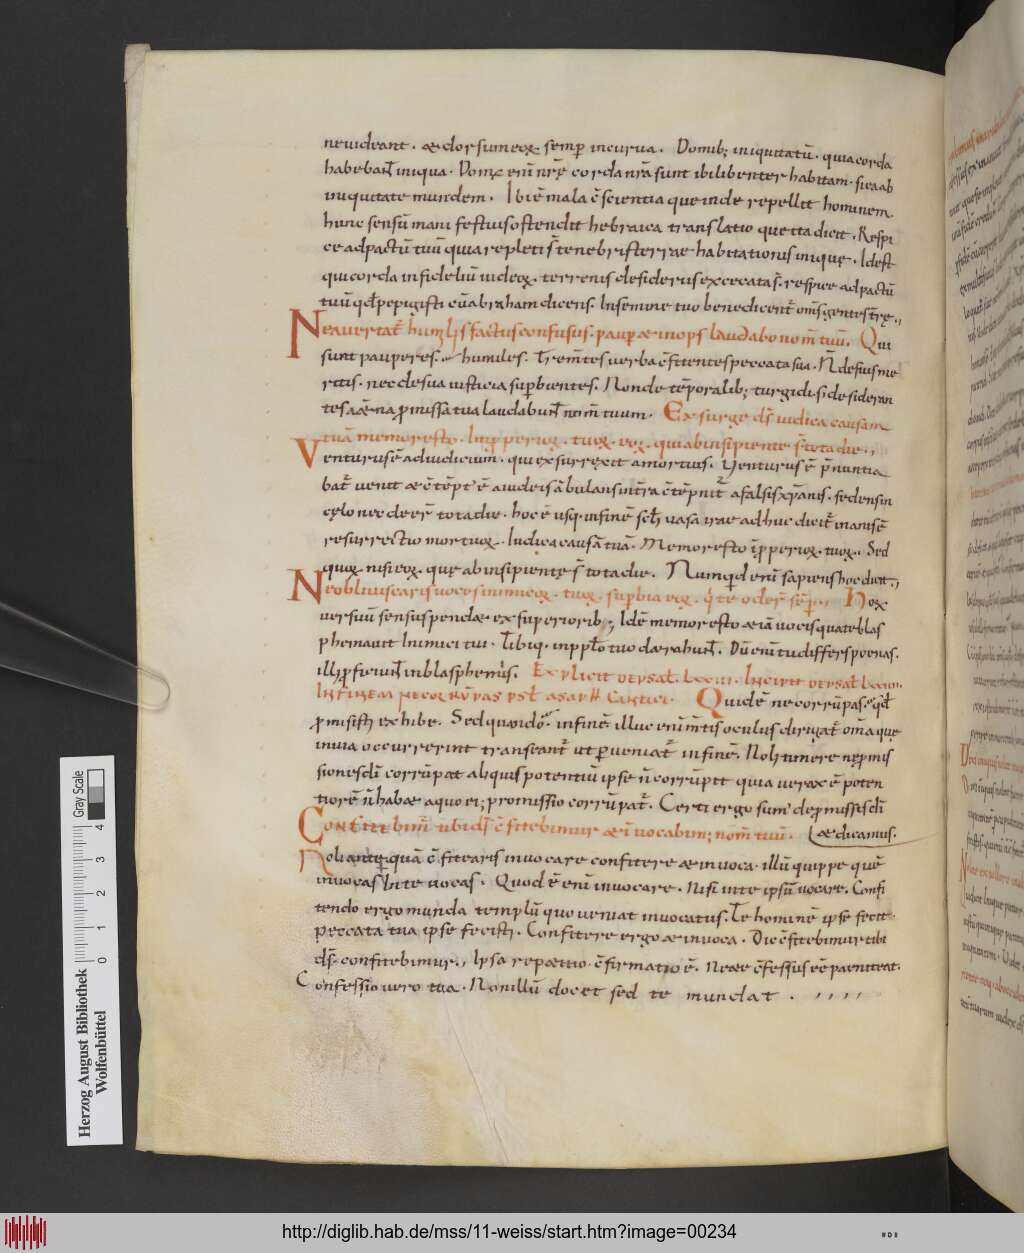 ne uideant · & dorsum eoꝝ semꝑ incurua · Domib; iniquitatū · quia corda
habebant̄ iniqua · Domꝰ enī nr̄ę corda nr̄a sunt ibi libenter habitam · si ea ab
iniquitate mundem · Ibi ē mala c̄scientia que inde repellit hominem ·
hunc sensū manifestius ostendit hebraica translatio que ita dicit · Respi
ce ad pactū tuū quia repleti s̄ tenebris terrae habitationis inique · Id est
qui corda infideliū iudeoꝝ · terrenis desideriis excecata s̄ · respice ad pactū
tuū qđ pepigisti cū abraham dicens · In semine tuo benedicent̄ oms̄ gentes t̄rę ·,
Ne auertat̄ humilis factus confusus · pauꝑ & inops laudabo nom̄ tuū · Qui
sunt pauperes · humiles · Trem̄tes uerba c̄fitentes peccata sua · N̄ de suis me
ritis · nec de sua iusticia suꝑbientes · Non de tēporalib; turgidi · si desideran
tes a&erna ꝓmissa tua laudabunt̄ nom̄ tuum · Exsurge dꝭ iudica causam
tuā memor esto · Inꝓperioꝝ · tuoꝝ · eoꝝ · qui ab insipiente s̄ tota die ·,
Venturus ē ad iudicium · qui exsurrexit a mortuis · Venturus ē p̄nuntia
bat̄ uenit & c̄tēpt' ē a iudeis ābulans in t̄ra c̄tēpnit̄ a falsis xp̄ianis · sedens in
cęlo nec deeēr̄ tota die · hoc ē usq· in finē sclī uasa irae adhuc dicit̄ inanis ē
resurrectio mortuoꝝ · Iudica causā tuā · Memor esto īꝓperioꝝ · tuoꝝ · Sed
quoꝝ nisi eoꝝ · quę ab insipientę s̄ tota die · Numqđ enī sapiens hoc dicit ·,
Ne obliuiscaris uoces inimicoꝝ · tuoꝝ · suꝑbia eoꝝ · q̄ te oder̄ sēꝑ ·, Uox
uersuū sensus pend& ex superiorib; Idē memor esto & iā uocis qua te blas
phemauit Inimici tui · Tibiq· in pplo tuo d&rahunt̄ · Dū enī tu differs poenas ·
illi ꝓficiunt̄ in blasphemiis · Explicit de psał · lxxiii · Incipit de psał lxxiiii ·
In finem ne corrūpas psł asaph cantici · Quid ē ne corrūpas · qđ
ꝓmisisti exhibe · Sed quando · in finē · illuc enī m̄tis oculus dirigat̄ om̄a quę
in uia occurrerint transeant̄ ut ꝑueniat̄ in finē · Noli timere ne ꝓmis
siones dī corrūpat aliquis potentiū ipse n̄ corrūpit quia uerax ē poten
tiorē n̄ hab& a quo ei; promissio corrūpat̄ · Certi ergo sum' de ꝓmissis dī
Confitebim̄ tibi dꝭ c̄fitebimur & inuocabim; nom̄ tuū · & dicamus ·
Noli anteꝗ̄ c̄fitearis inuocare confitere & inuoca · illū quippe quē
inuocas In te uocas · Quod ē enī inuocare · Nisi in te ipsū uocare · Confi
tendo ergo munda templū quo ueniat inuocatus · Te hominē ipse fecit ·
peccata tua ipse fecisti · Confitere ergo & inuoca · Dic c̄fitebimur tibi
dꝭ · confitebimur ·, Ipsa rep&itio · c̄firmatio ē · Ne te c̄fessus eē paeniteat ·
Confessio uero tua · Non illū docet sed te mundat · ,,,,
Herzog August Bibliothek
Wolfenbüttel
Gray Scale
0 1 2 3 4
http://diglib.hab.de/mss/11-weiss/start.htm?image=00234